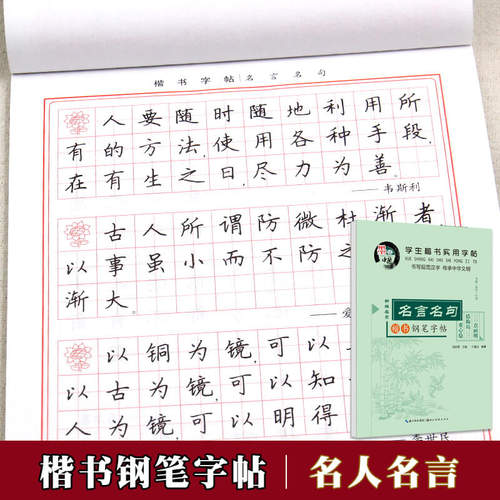 楷书字帖 名言名句
人要随时随地利用所
有的方法,使用各种手段,
在有生之日,尽力为善。
——韦斯利
古人所谓防微杜渐者,
以事虽小而不防之
渐大。
——爱
以铜为镜,可以
以古为镜,可以知
人为镜,可以明得
李世民
学生楷书实用字帖
XUE SHENG KAI SHU SHI YONG ZI TIE
书写规范汉字 传承中华文明
名言名句
楷书钢笔字帖
楷书钢笔字帖 名人名言